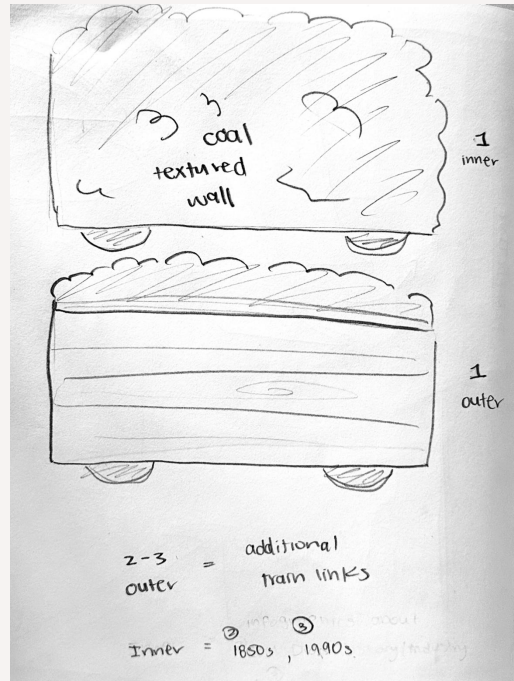 coal
textured
wall
1
inner
1
outer
2-3 = additional
outer train links
Inner = ② 1850s, ③ 1990s